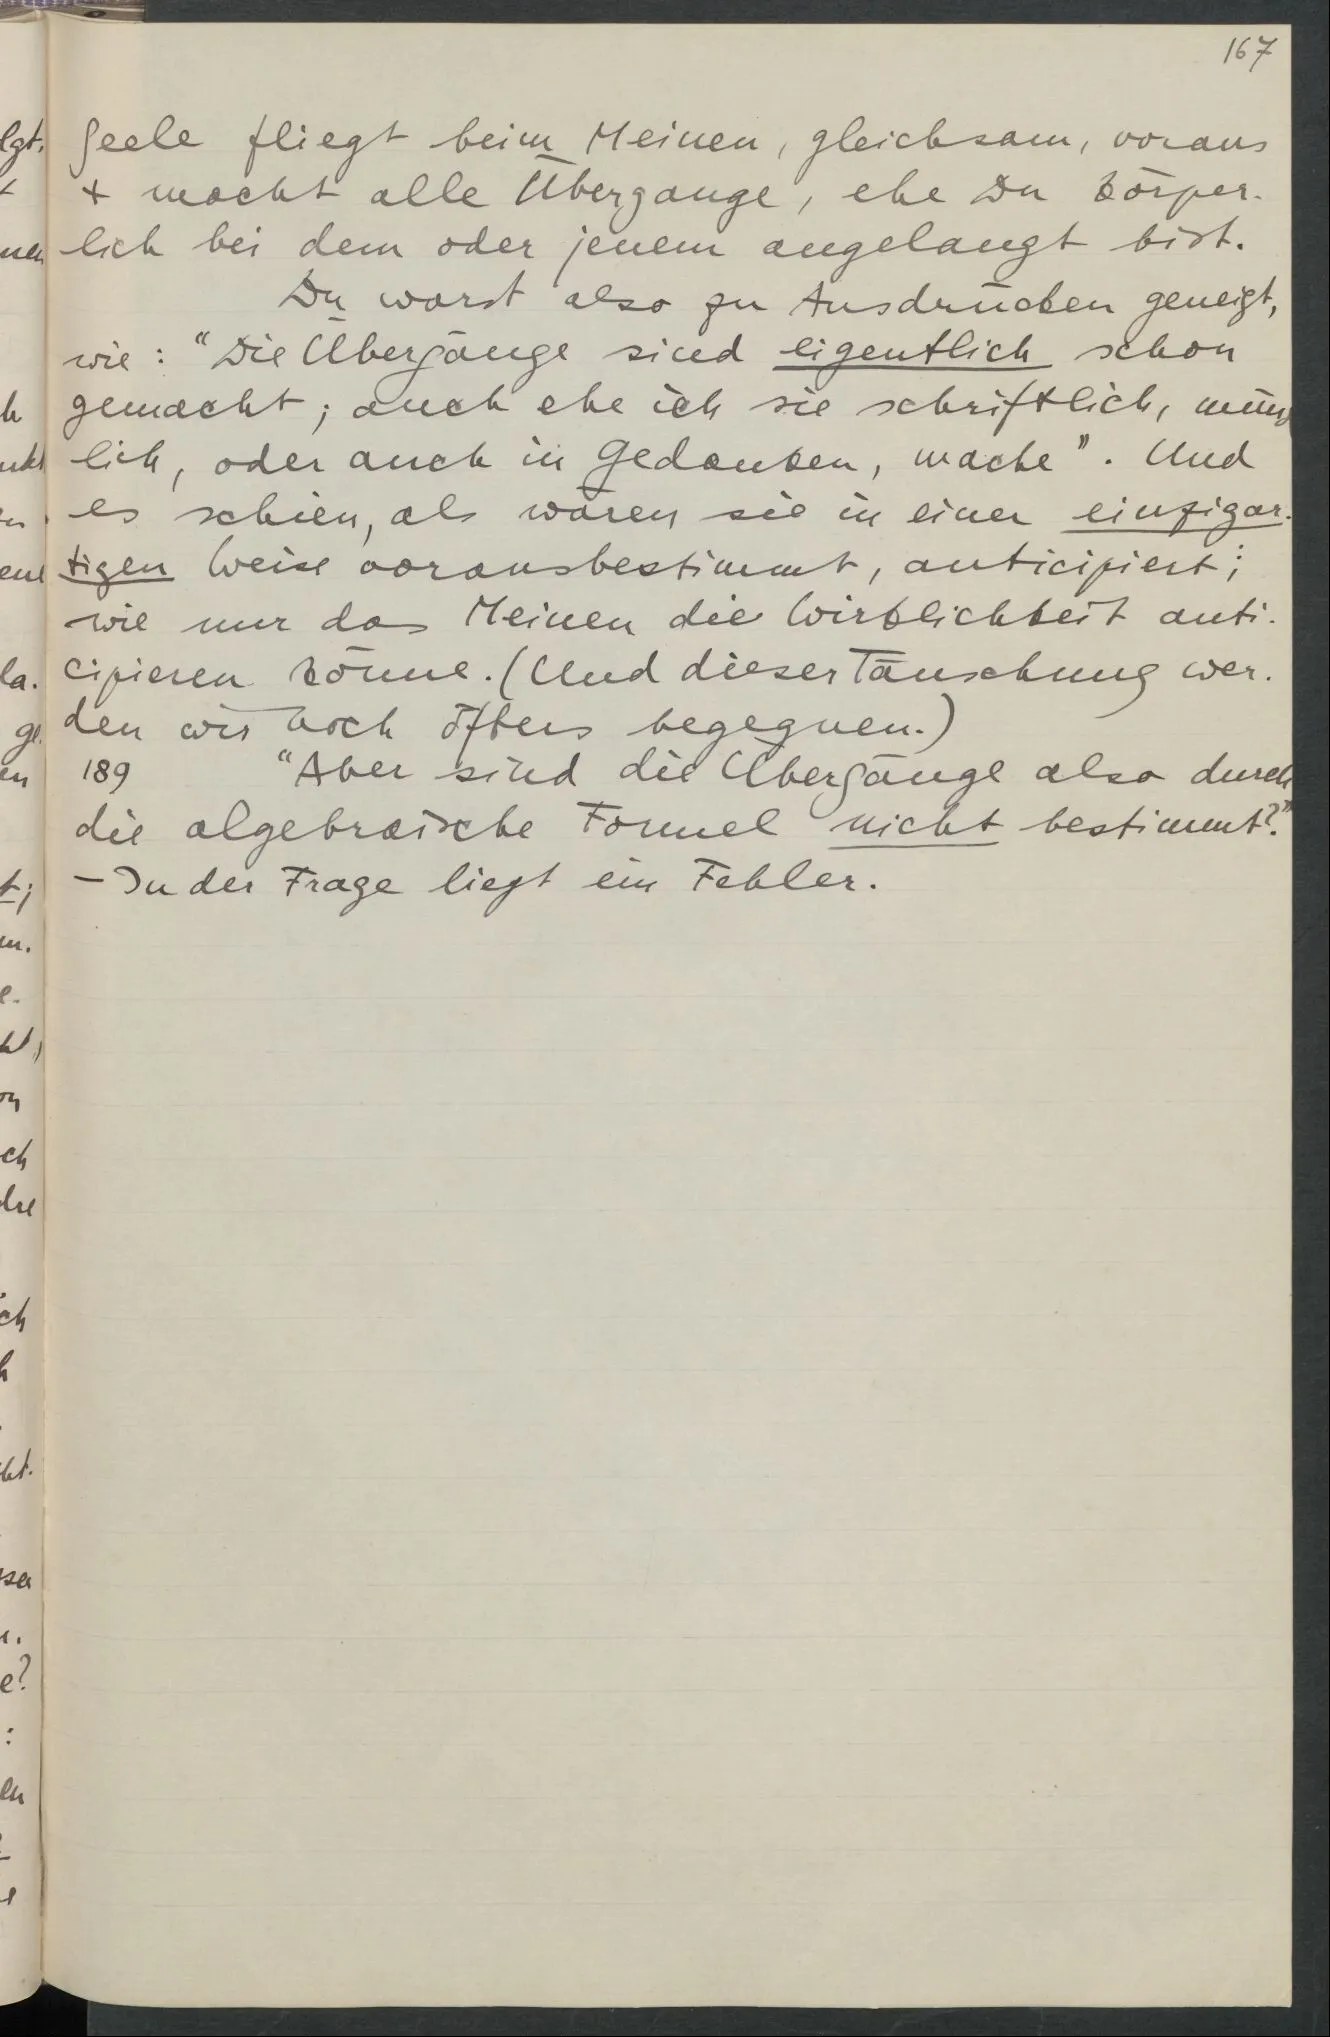 167
Seele fliegt beim Meinen, gleichsam, voraus
+ macht alle Übergange, ehe Du körper-
lich bei dem oder jenem angelangt bist.
Du warst also zu Ausdrücken geneigt,
wie: "Die Übergänge sind eigentlich schon
gemacht; auch ehe ich sie schriftlich, münd
lich, oder auch in Gedanken, mache". Und
es schien, als wären sie in einer einzigar-
tigen Weise vorausbestimmt, anticipiert;
wie nur das Meinen die Wirklichkeit anti-
cipieren könne. (Und dieser Täuschung wer-
den wir noch öfters begegnen.)
189 "Aber sind die Übergänge also durch
die algebraische Formel nicht bestimmt?"
– In der Frage liegt ein Fehler.